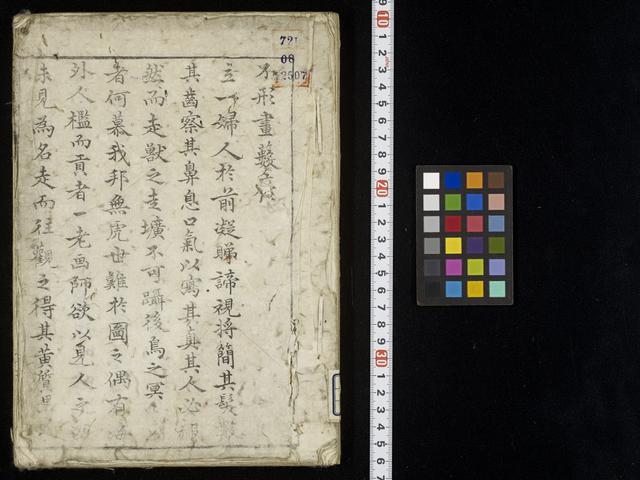 721
08
不形畫藪
立一婦人於前凝睇諦視将簡其髮
其齒察其鼻息口氣以寫其真其人必
然而走獸之走壙不可躡後鳥之冥
者何慕我邦無虎世難於圖之偶有海
外人檻而貢者一老画師欲以見人
未見為名走而往觀之得其黄質黒
9 10 1 2 3 4 5 6 7 8 9 20 1 2 3 4 5 6 7 8 9 30 1 2 3 4 5 6 7